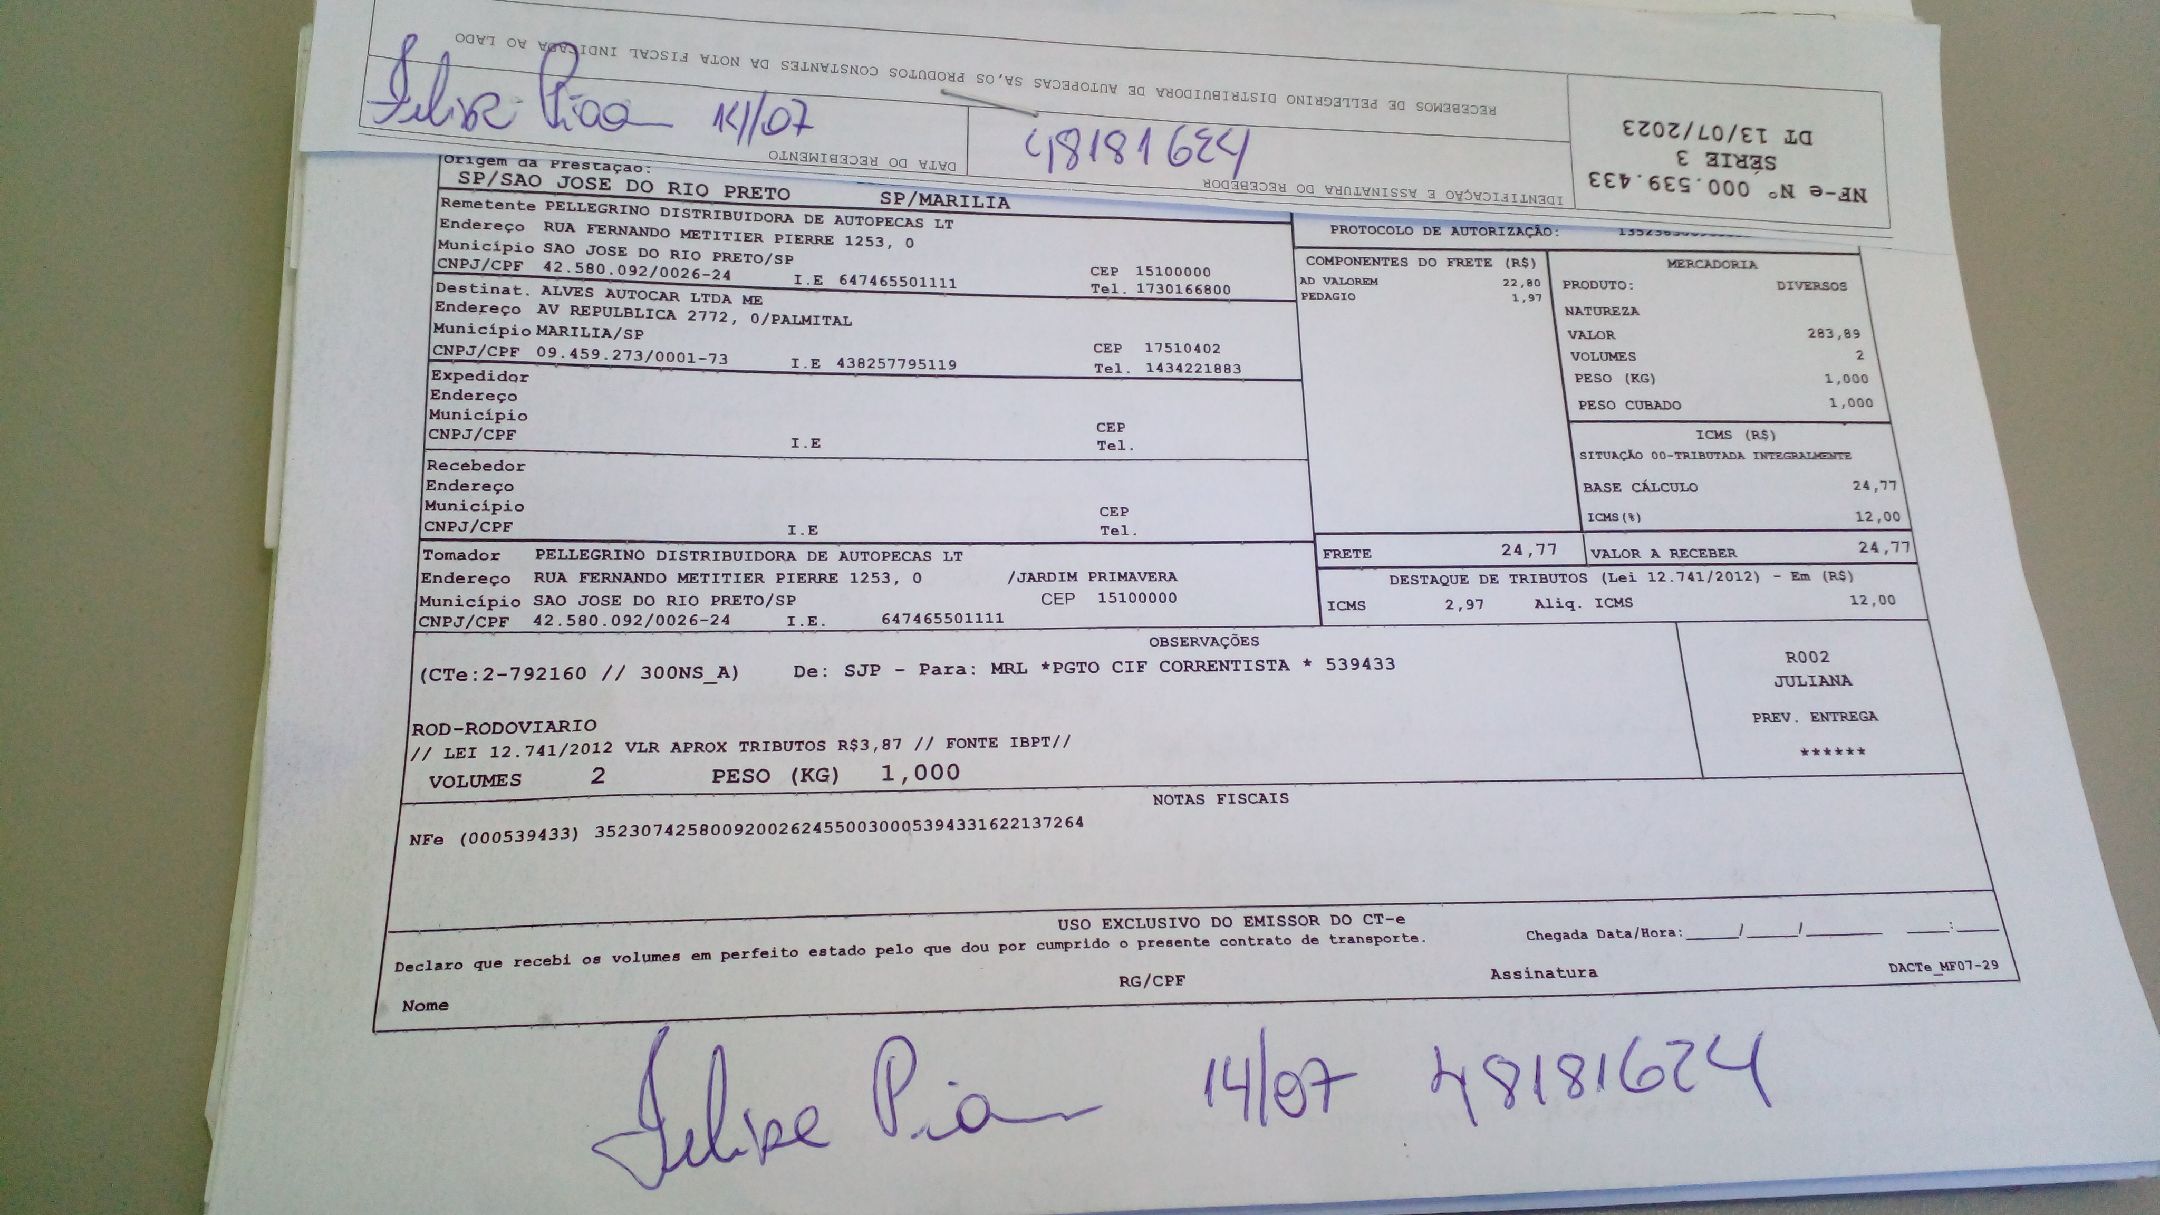 RECEBEMOS DE PELLEGRINO DISTRIBUIDORA DE AUTOPECAS SA,OS PRODUTOS CONSTANTES DA NOTA FISCAL INDICADA AO LADO
NF-e Nº 000.539.433
SÉRIE 3
DT 13/07/2023
IDENTIFICAÇÃO E ASSINATURA DO RECEBEDOR
48181624
DATA DO RECEBIMENTO
Felipe 14/07
Origem da Prestação:
SP/SAO JOSE DO RIO PRETO SP/MARILIA
Remetente PELLEGRINO DISTRIBUIDORA DE AUTOPECAS LT
Endereço RUA FERNANDO METITIER PIERRE 1253, 0
Município SAO JOSE DO RIO PRETO/SP
CEP 15100000
CNPJ/CPF 42.580.092/0026-24 I.E 647465501111
Tel. 1730166800
Destinat. ALVES AUTOCAR LTDA ME
Endereço AV REPULBLICA 2772, 0/PALMITAL
Município MARILIA/SP
CEP 17510402
CNPJ/CPF 09.459.273/0001-73 I.E 438257795119
Tel. 1434221883
Expedidor
Endereço
Município
CEP
CNPJ/CPF I.E Tel.
Recebedor
Endereço
Município
CEP
CNPJ/CPF I.E Tel.
Tomador PELLEGRINO DISTRIBUIDORA DE AUTOPECAS LT
Endereço RUA FERNANDO METITIER PIERRE 1253, 0 /JARDIM PRIMAVERA
Município SAO JOSE DO RIO PRETO/SP CEP 15100000
CNPJ/CPF 42.580.092/0026-24 I.E. 647465501111
PROTOCOLO DE AUTORIZAÇÃO:
COMPONENTES DO FRETE (R$)
AD VALOREM 22,80
PEDAGIO 1,97
MERCADORIA
PRODUTO: DIVERSOS
NATUREZA
VALOR 283,89
VOLUMES 2
PESO (KG) 1,000
PESO CUBADO 1,000
ICMS (R$)
SITUAÇÃO 00-TRIBUTADA INTEGRALMENTE
BASE CÁLCULO 24,77
ICMS(%) 12,00
FRETE 24,77 VALOR A RECEBER 24,77
DESTAQUE DE TRIBUTOS (Lei 12.741/2012) - Em (R$)
ICMS 2,97 Aliq. ICMS 12,00
OBSERVAÇÕES
(CTe:2-792160 // 300NS_A) De: SJP - Para: MRL *PGTO CIF CORRENTISTA * 539433
ROD-RODOVIARIO
// LEI 12.741/2012 VLR APROX TRIBUTOS R$3,87 // FONTE IBPT//
VOLUMES 2 PESO (KG) 1,000
R002
JULIANA
PREV. ENTREGA
******
NOTAS FISCAIS
NFe (000539433) 35230742580092002624550030005394331622137264
USO EXCLUSIVO DO EMISSOR DO CT-e
Declaro que recebi os volumes em perfeito estado pelo que dou por cumprido o presente contrato de transporte.
Chegada Data/Hora:_____/_____/________ ____:____
Nome RG/CPF Assinatura DACTe_MF07-29
Felipe 14/07 48181624